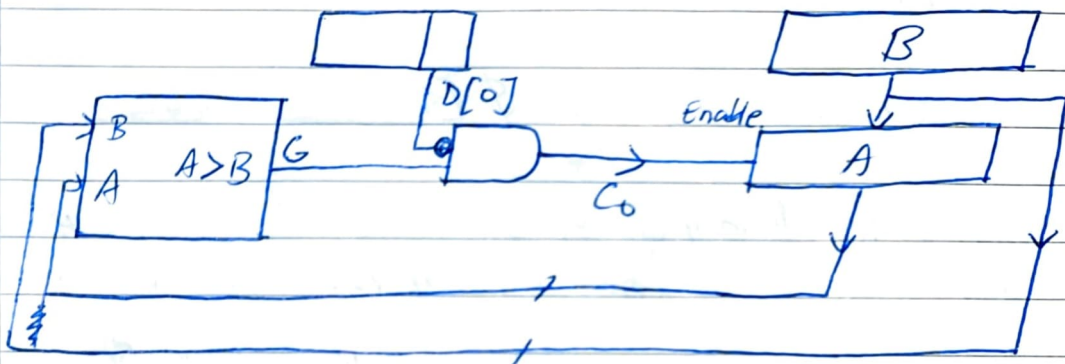 B
D[0]
Enable
B
A > B
G
A
A
C₀